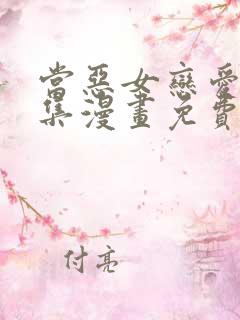 當惡女戀愛
集漫畫免費
付亮